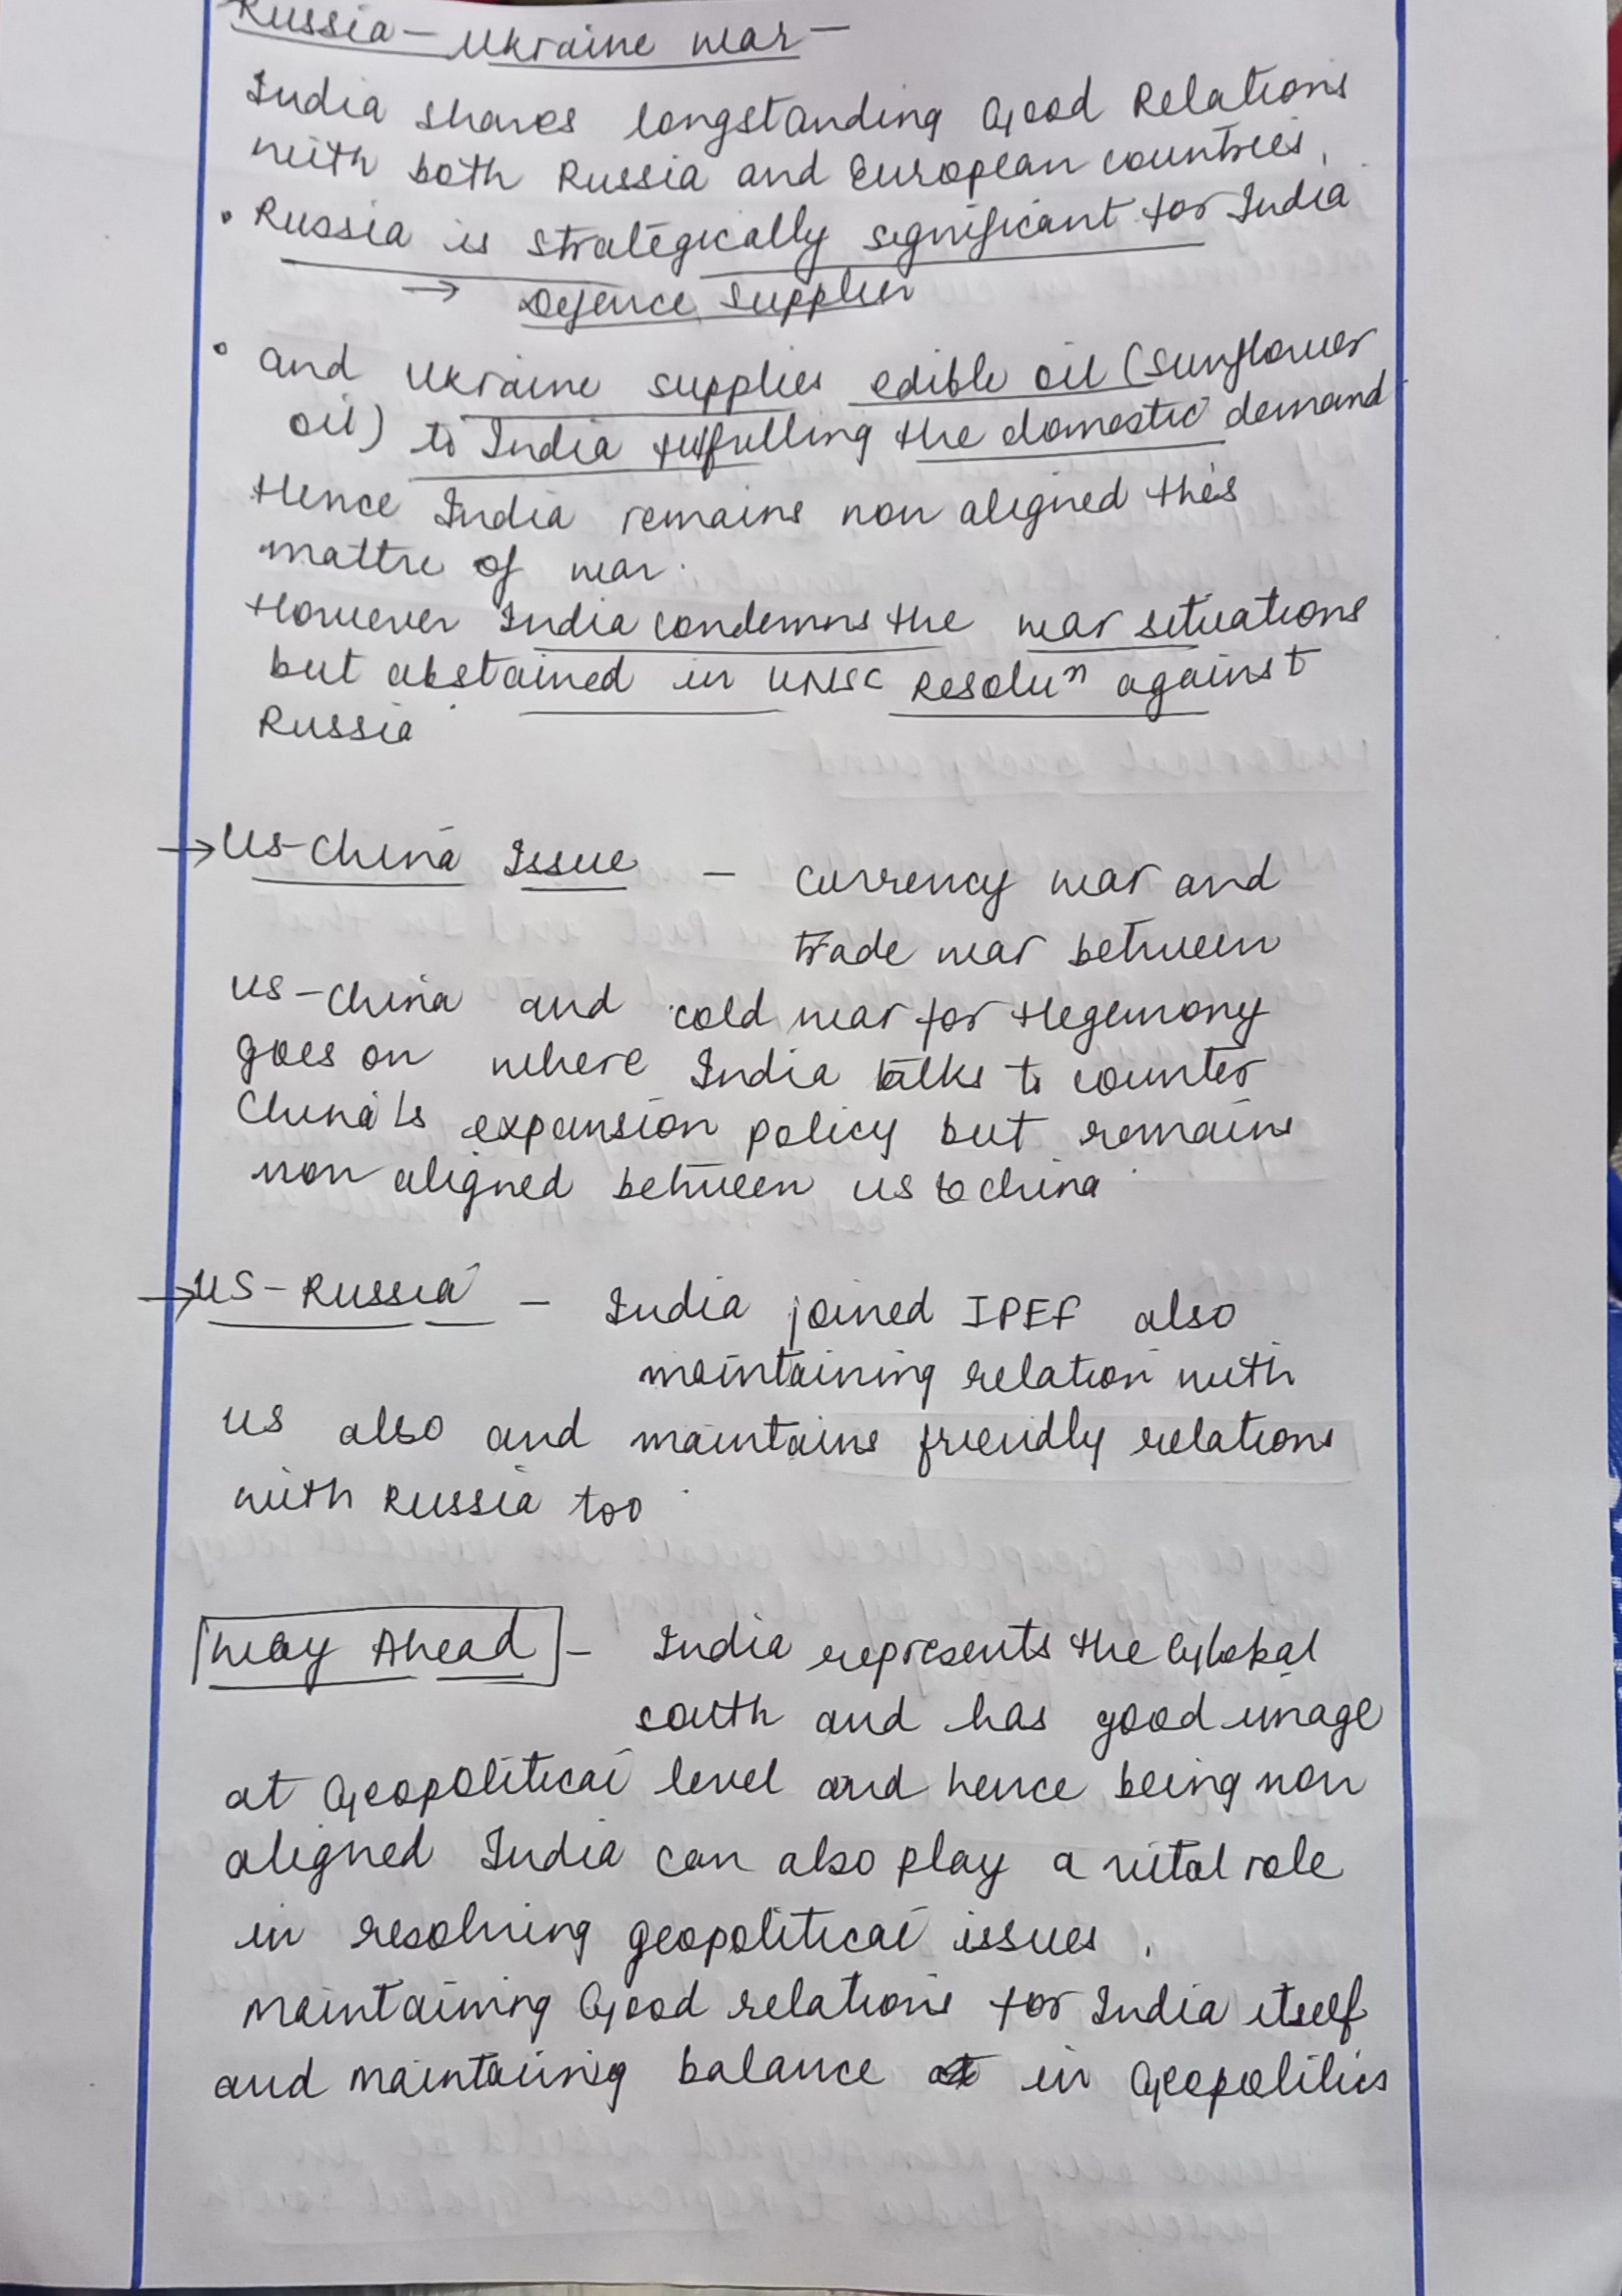 Russia - Ukraine war -
India shares longstanding Good Relations
with both Russia and European countries.
• Russia is strategically significant for India
→ Defence supplier
• and Ukraine supplies edible oil (sunflower
oil) to India fulfilling the domestic demand
Hence India remains non aligned this
mattre of war.
However India condemns the war situations
but abstained in UNSC Resoluⁿ against
Russia
→ US-China Issue - currency war and
trade war between
US-China and cold war for Hegemony
goes on where India talks to counter
China's expansion policy but remains
non aligned between US & China
→ US-Russia - India joined IPEF also
maintaining relation with
US also and maintains friendly relations
with Russia too
Way Ahead - India represents the Global
south and has good image
at Geopolitical level and hence being non
aligned India can also play a vital role
in resolving geopolitical issues.
Maintaining Good relations for India itself
and maintaining balance in Geopolitics